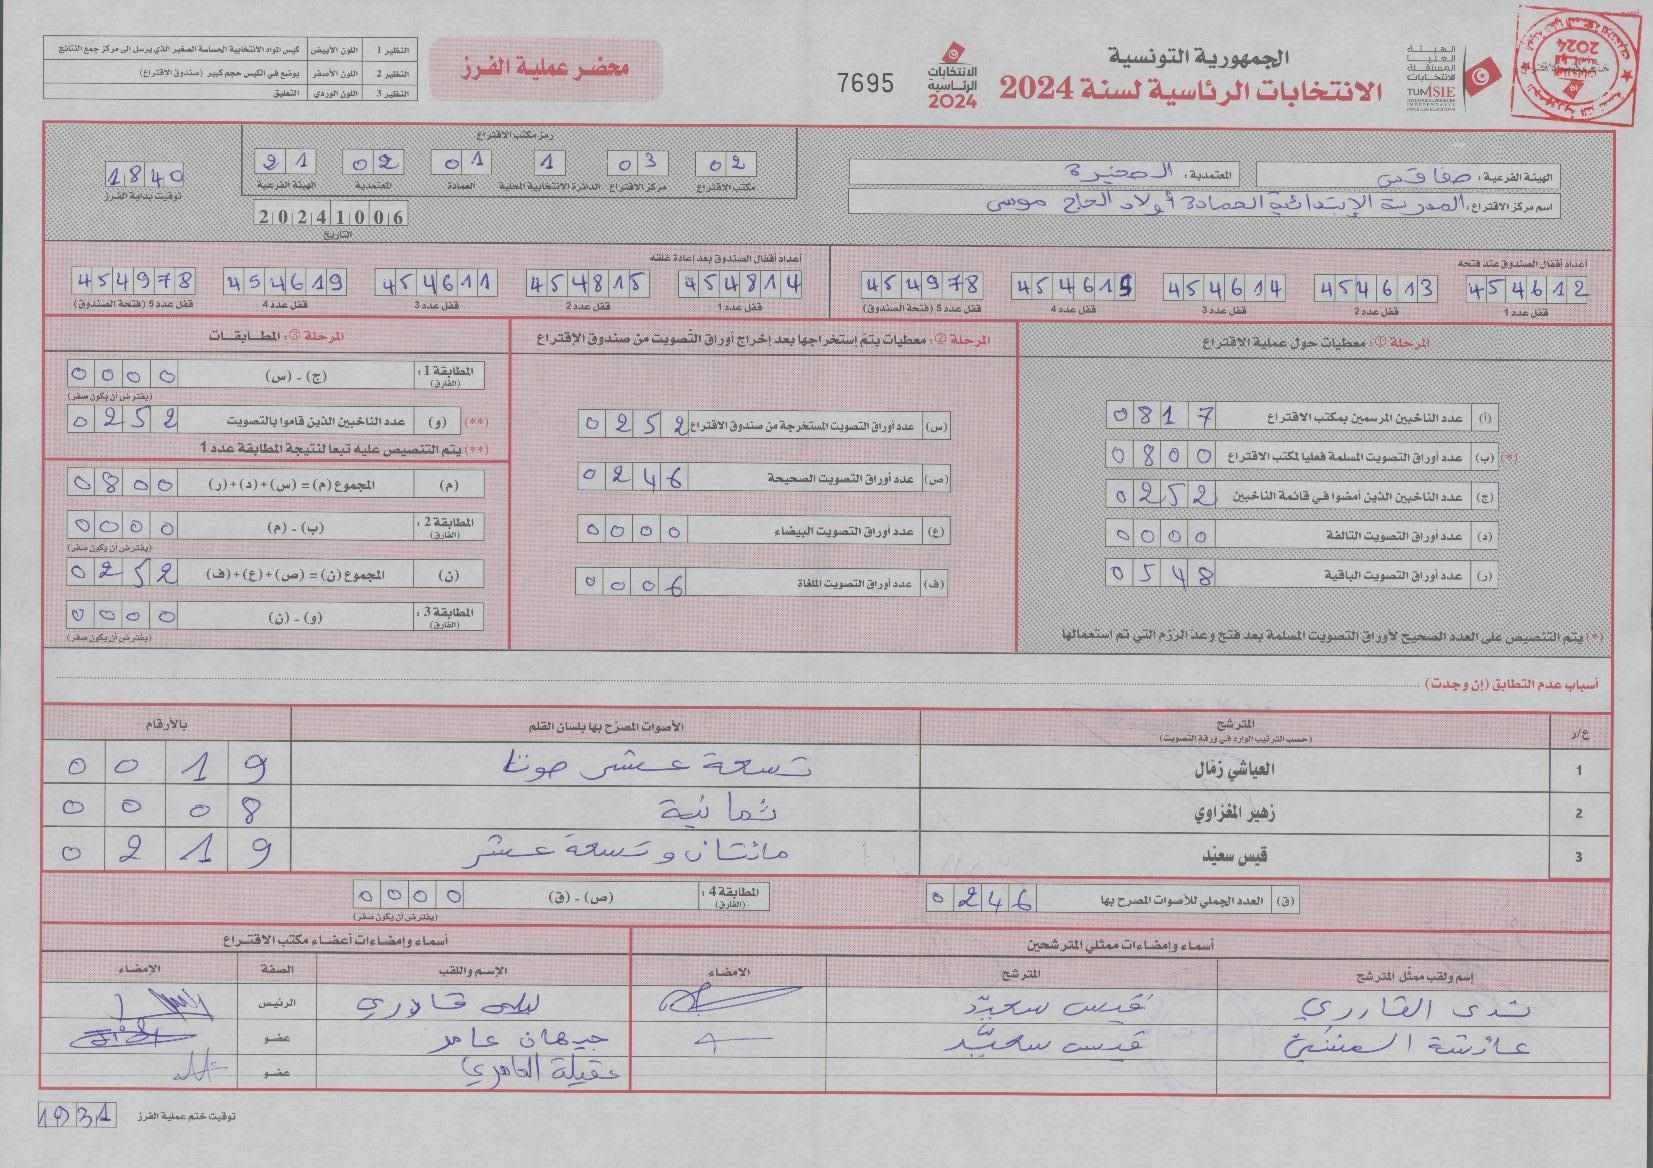 الجمهورية التونسية
الانتخابات الرئاسية لسنة 2024
الهيئة العليا المستقلة للانتخابات
TUNISIE
الانتخابات الرئاسية 2024
7695
محضر عملية الفرز
النظير 1 اللون الأبيض كيس المواد الانتخابية الحساسة الصغير الذي يرسل الى مركز جمع النتائج
النظير 2 اللون الأصفر يوضع في الكيس حجم كبير (صندوق الاقتراع)
النظير 3 اللون الوردي التعليق
الهيئة الفرعية: صفاقس
المعتمدية: الصخيرة
اسم مركز الاقتراع: المدرسة الإبتدائية الحمادة أولاد الحاج موسى
رمز مكتب الاقتراع
02 مكتب الاقتراع
03 مركز الاقتراع
1 الدائرة الانتخابية المحلية
01 العمادة
02 المعتمدية
21 الهيئة الفرعية
20241006
التاريخ
1840
توقيت بداية الفرز
أعداد أقفال الصندوق عند فتحه
454612 قفل عدد 1
454613 قفل عدد 2
454614 قفل عدد 3
454615 قفل عدد 4
454978 قفل عدد 5 (فتحة الصندوق)
أعداد أقفال الصندوق بعد إعادة غلقه
454814 قفل عدد 1
454815 قفل عدد 2
454611 قفل عدد 3
454619 قفل عدد 4
454978 قفل عدد 5 (فتحة الصندوق)
المرحلة ①: معطيات حول عملية الاقتراع
(أ) عدد الناخبين المرسمين بمكتب الاقتراع 0817
(*) (ب) عدد أوراق التصويت المسلمة فعليا لمكتب الاقتراع 0800
(ج) عدد الناخبين الذين أمضوا في قائمة الناخبين 0252
(د) عدد أوراق التصويت التالفة 0000
(ر) عدد أوراق التصويت الباقية 0548
(*) يتم التنصيص على العدد الصحيح لأوراق التصويت المسلمة بعد فتح وعد الرزم التي تم استعمالها
المرحلة ②: معطيات يتم إستخراجها بعد إخراج أوراق التصويت من صندوق الإقتراع
(س) عدد أوراق التصويت المستخرجة من صندوق الاقتراع 0252
(ص) عدد أوراق التصويت الصحيحة 0246
(ع) عدد أوراق التصويت البيضاء 0000
(ف) عدد أوراق التصويت الملغاة 0006
المرحلة ③: المطابقات
المطابقة 1: (الفارق) (ج) - (س) 0000
(يفترض أن يكون صفر)
(**) (و) عدد الناخبين الذين قاموا بالتصويت 0252
(**) يتم التنصيص عليه تبعا لنتيجة المطابقة عدد 1
(م) المجموع (م) = (س)+(د)+(ر) 0800
المطابقة 2: (الفارق) (ب) - (م) 0000
(يفترض أن يكون صفر)
(ن) المجموع (ن) = (ص)+(ع)+(ف) 0252
المطابقة 3: (الفارق) (و) - (ن) 0000
(يفترض أن يكون صفر)
أسباب عدم التطابق (إن وجدت)
ع/ر المترشح الأصوات المصرّح بها بلسان القلم بالأرقام
(حسب الترتيب الوارد في ورقة التصويت)
1 العياشي زمّال تسعة عشر صوتا 0019
2 زهير المغزاوي ثمانية 0008
3 قيس سعيّد مائتان وتسعة عشر 0219
(ق) العدد الجملي للأصوات المصرح بها 0246
المطابقة 4: (الفارق) (ص) - (ق) 0000
(يفترض أن يكون صفر)
أسماء وإمضاءات ممثلي المترشحين
إسم ولقب ممثّل المترشح المترشح الامضاء
ندى القادري قيس سعيّد
عائشة قيس سعيّد
أسماء وإمضاءات أعضاء مكتب الاقتراع
الإسم واللقب الصفة الإمضاء
ليلى قادري الرئيس
جيهان عامر عضو
عقيلة العامري عضو
توقيت ختم عملية الفرز 1931